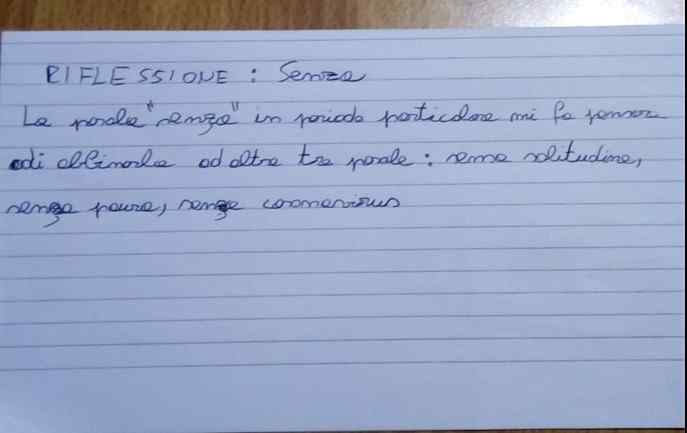 RIFLESSIONE : Senza
La parola "senza" in periodo particolare mi fa pensare
adi abbinarla ad altre tre parole : senza solitudine,
senza paura, senza coronavirus